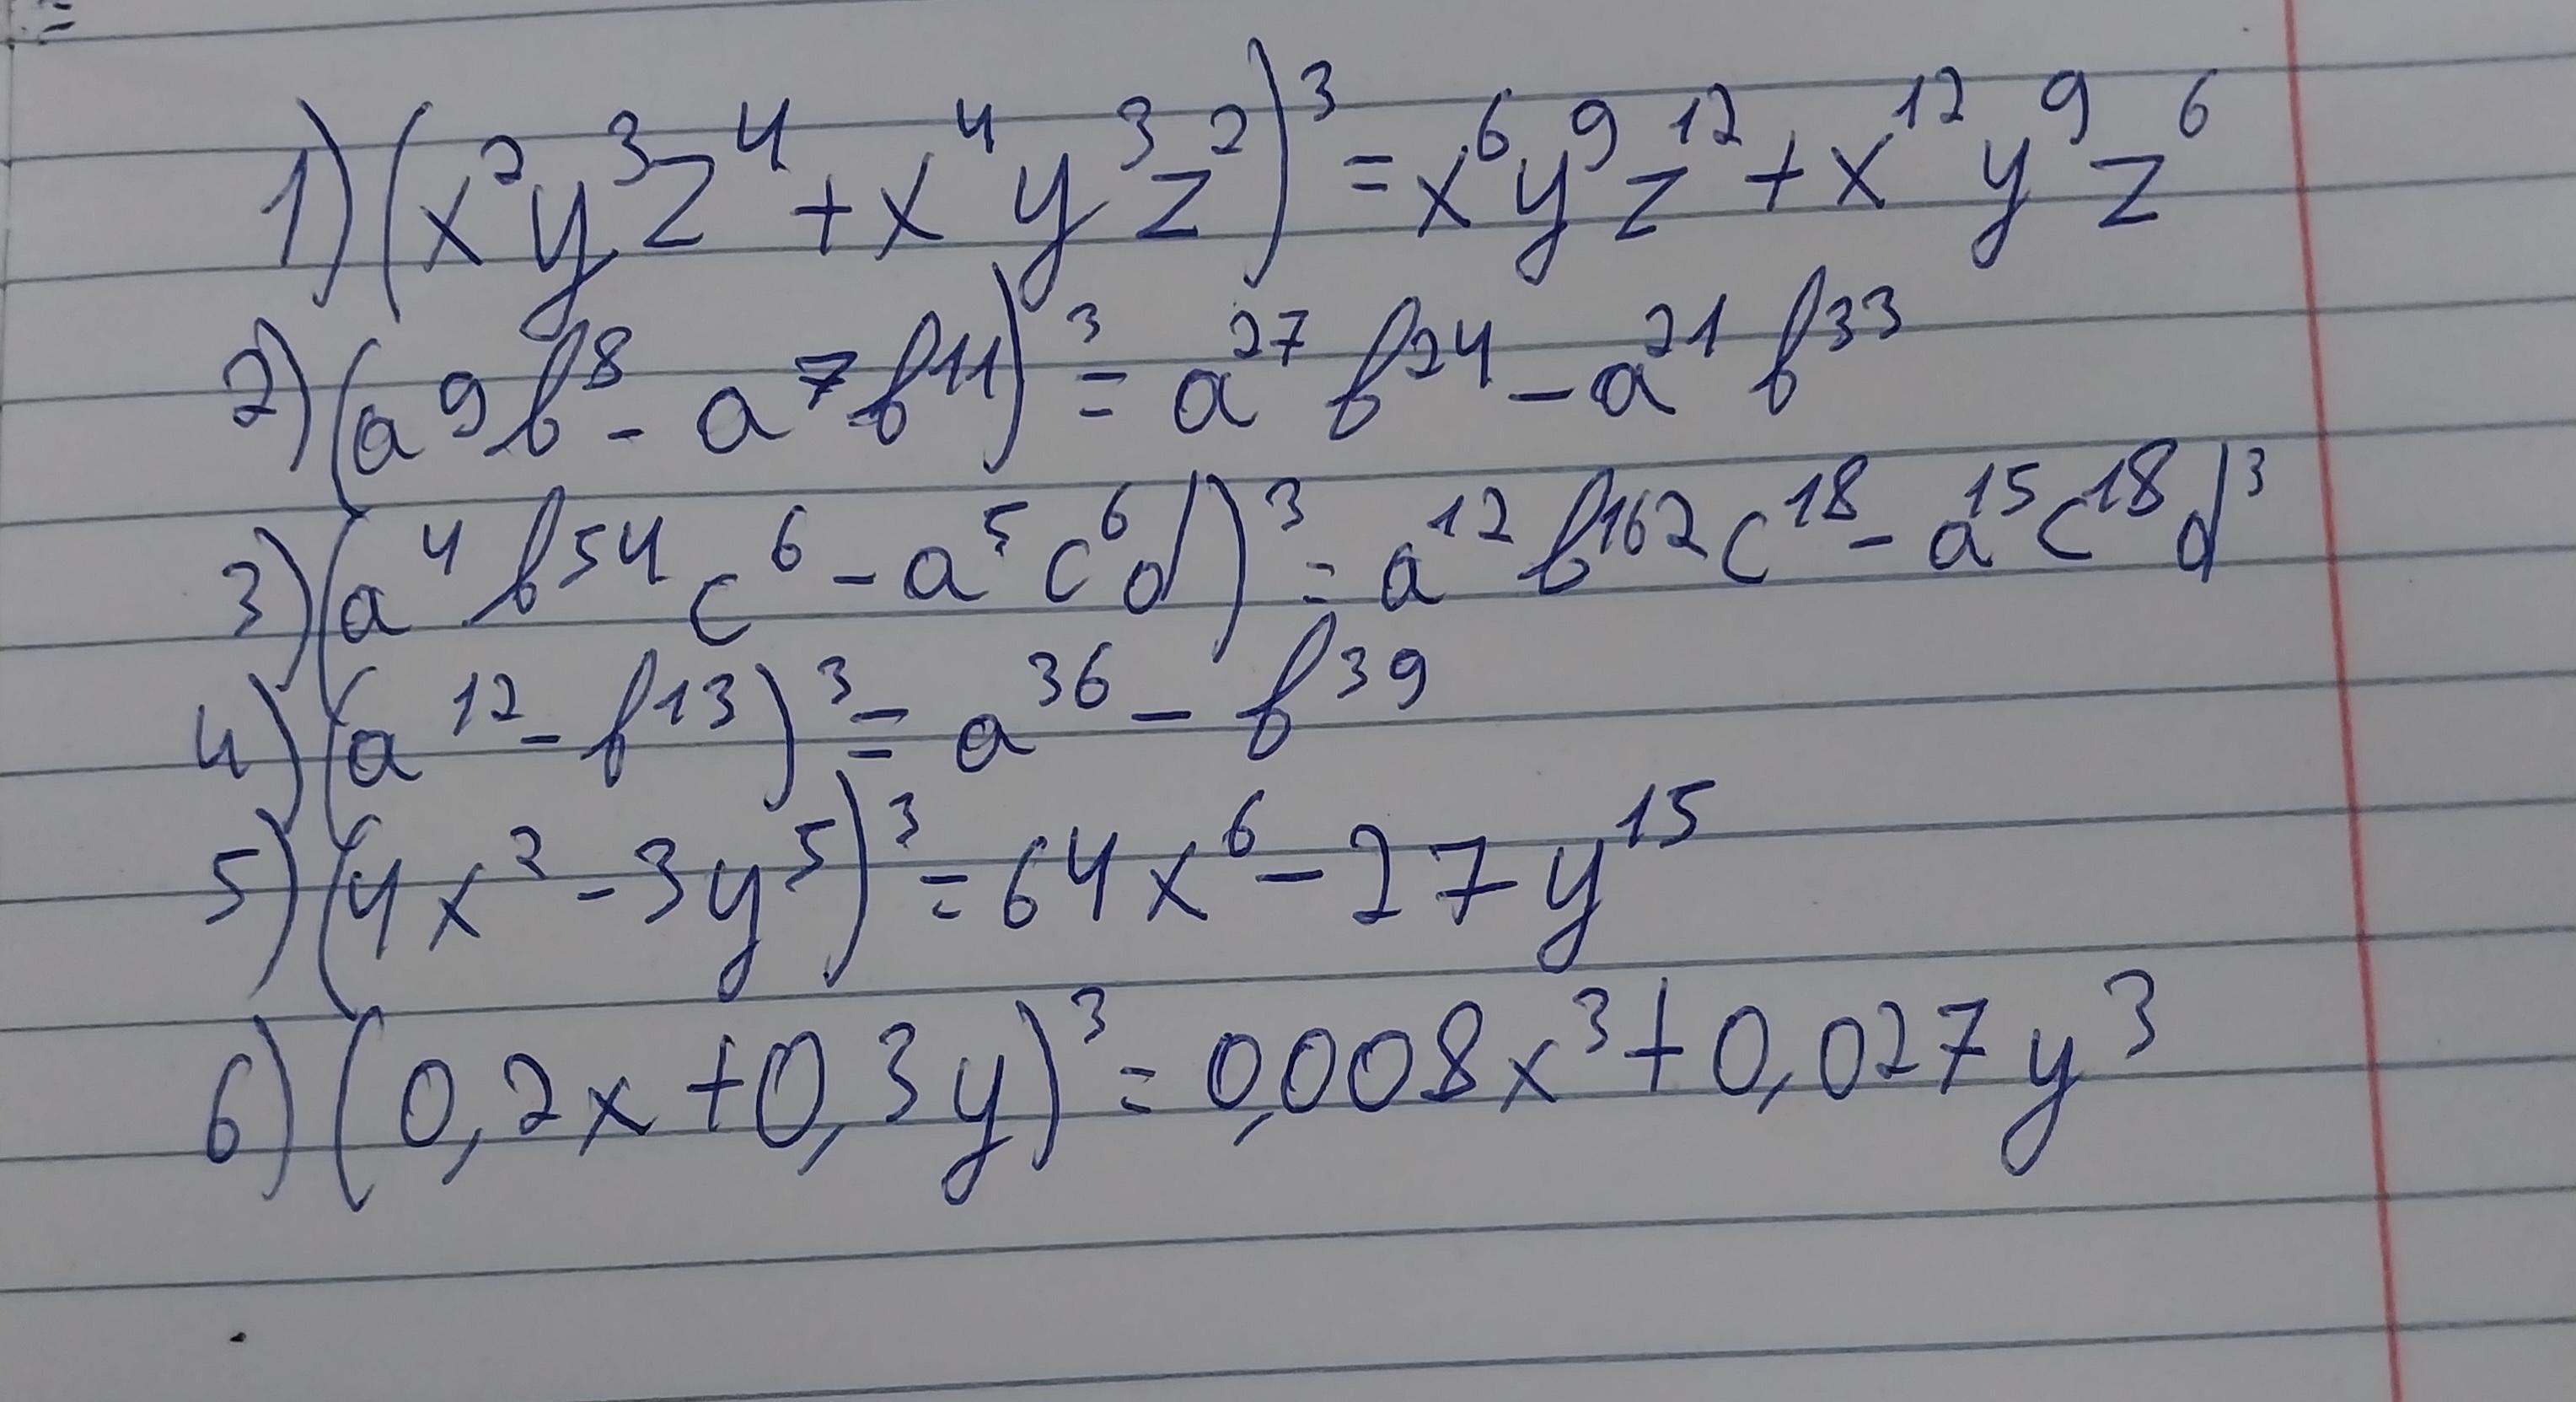 1) (x²y³z⁴ + x⁴y³z²)³ = x⁶y⁹z¹² + x¹²y⁹z⁶
2) (a⁹b⁸ - a⁷b¹¹)³ = a²⁷b²⁴ - a²¹b³³
3) (a⁴b⁵⁴c⁶ - a⁵c⁶d)³ = a¹²b¹⁶²c¹⁸ - a¹⁵c¹⁸d³
4) (a¹² - b¹³)³ = a³⁶ - b³⁹
5) (4x² - 3y⁵)³ = 64x⁶ - 27y¹⁵
6) (0,2x + 0,3y)³ = 0,008x³ + 0,027y³